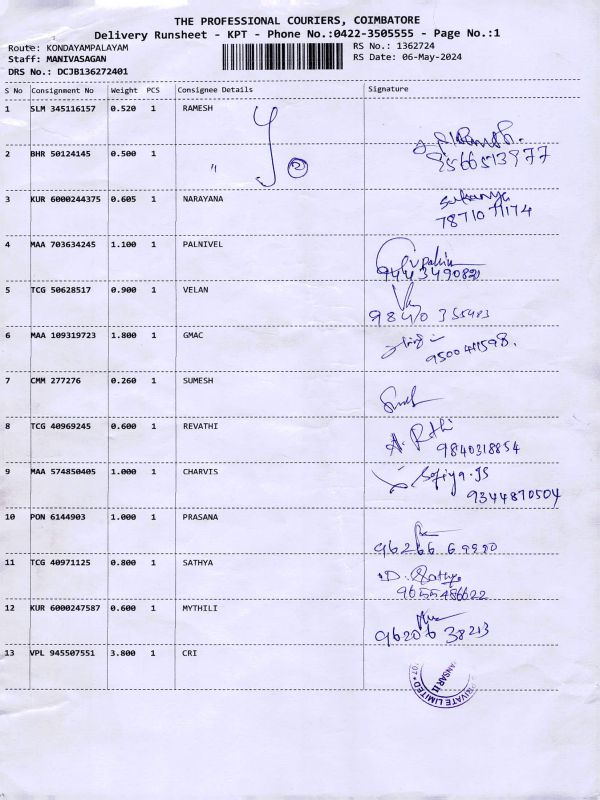 THE PROFESSIONAL COURIERS, COIMBATORE
Delivery Runsheet - KPT - Phone No.:0422-3505555 - Page No.:1
Route: KONDAYAMPALAYAM RS No.: 1362724
Staff: MANIVASAGAN RS Date: 06-May-2024
DRS No.: DCJB136272401
S No Consignment No Weight PCS Consignee Details Signature
1 SLM 345116157 0.520 1 RAMESH
2 BHR 50124145 0.500 1 " 2 9566513977
3 KUR 6000244375 0.605 1 NARAYANA Sukanya
7871071174
4 MAA 703634245 1.100 1 PALNIVEL
5 TCG 50628517 0.900 1 VELAN
98410 355483
6 MAA 109319723 1.800 1 GMAC
7 CMM 277276 0.260 1 SUMESH
8 TCG 40969245 0.600 1 REVATHI
9840318854
9 MAA 574850405 1.000 1 CHARVIS Sofiya.JS
9344870504
10 PON 6144903 1.000 1 PRASANA
11 TCG 40971125 0.800 1 SATHYA D. Sathya
9655486622
12 KUR 6000247587 0.600 1 MYTHILI
96206 38213
13 VPL 945507551 3.800 1 CRI
PRIVATE LIMITED